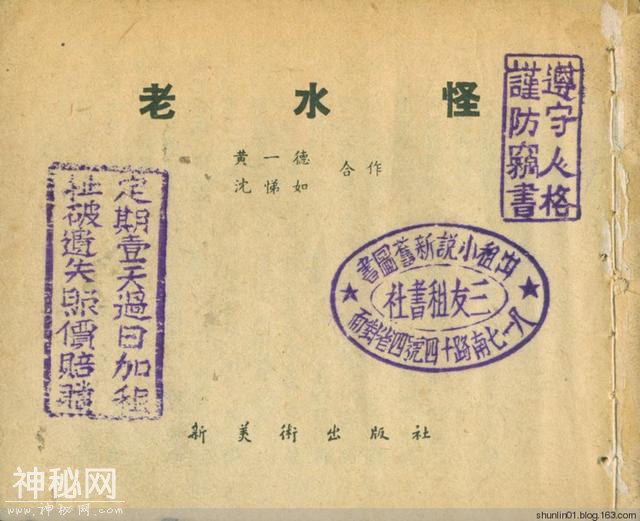 老水怪
黄一德 合作
沈悌如
遵守人格
謹防竊書
出租小説新舊圖書
三友租書社
八一七南路十四號四省對面
定期壹天過日加租
扯破遺失照價賠償
新美術出版社
神秘网
www.神秘网.com
shunlin01.blog.163.com